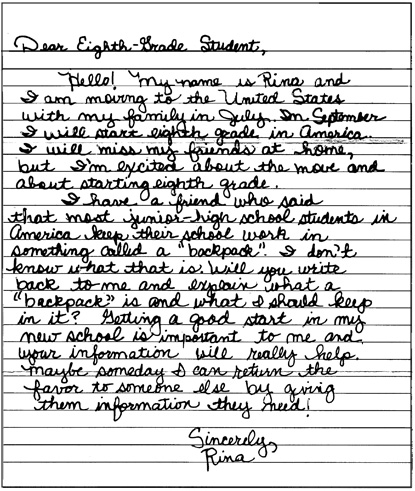 Dear Eighth-Grade Student,
Hello! My name is Rina and
I am moving to the United States
with my family in July. In September
I will start eighth grade in America.
I will miss my friends at home,
but I'm excited about the move and
about starting eighth grade.
I have a friend who said
that most junior-high school students in
America keep their school work in
something called a "backpack". I don't
know what that is. Will you write
back to me and explain what a
"backpack" is and what I should keep
in it? Getting a good start in my
new school is important to me and
your information will really help.
Maybe someday I can return the
favor to someone else by giving
them information they need!
Sincerely,
Rina